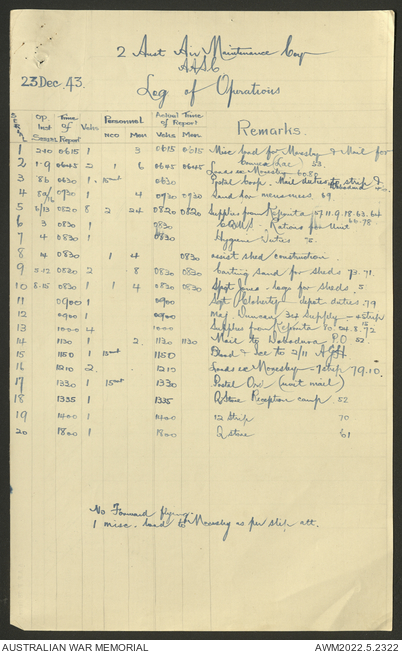 2 Aust Air Maintenance Coy
AASC
23 Dec. 43.
Log of Operations
SERIAL Op. Inst Serial Time of Report Vehs Personnel NCO Men Actual Time of Report Vehs Men Remarks.
1 240 0615 1 3 0615 0615 Misc load for Moresby & Mail for
2 1-9 0645 2 1 6 0645 0645 Loads ex Moresby
3 8b 0630 1 0630 Postal Corp. Mail duties to strip &
4 0730 1 4 0730 0730 Sand for mens mess. 69.
5 5/13 0820 8 2 24 0820 0820 Supplies from 57.11.9.18.63.64
6 3 0830 1 0830 Rations for Unit 66.78
7 4 0830 1 0830 Hygiene Duties 75.
8 4 0830 1 4 0830 assist shed construction.
9 5-12 0830 2 8 0830 0830 Carting sand for sheds 73.71.
10 8-15 0830 1 1 4 0830 0830 logs for sheds. 5
11 0900 1 0900 Sgt depot duties. 79
12 0900 1 0900 Maj. Duncan Supply - strip
13 1000 4 1000 Supplies from
14 1130 1 2 1130 1130 Mail to Dobodura P.O 52.
15 1150 1 1150 Blood & Ice to 2/11 AGH
16 1210 2. 1210 Loads ex Moresby - 7 strip 79.10.
17 1330 1 1330 Postal Ord (unit mail)
18 1335 1 1335 Q Store Reception camp. 52
19 1400 1 1400 12 Strip 70
20 1800 1 1800 Q store 61
No Forward flying.
1 misc. load to Moresby as per slip att.
AUSTRALIAN WAR MEMORIAL
AWM2022.5.2322